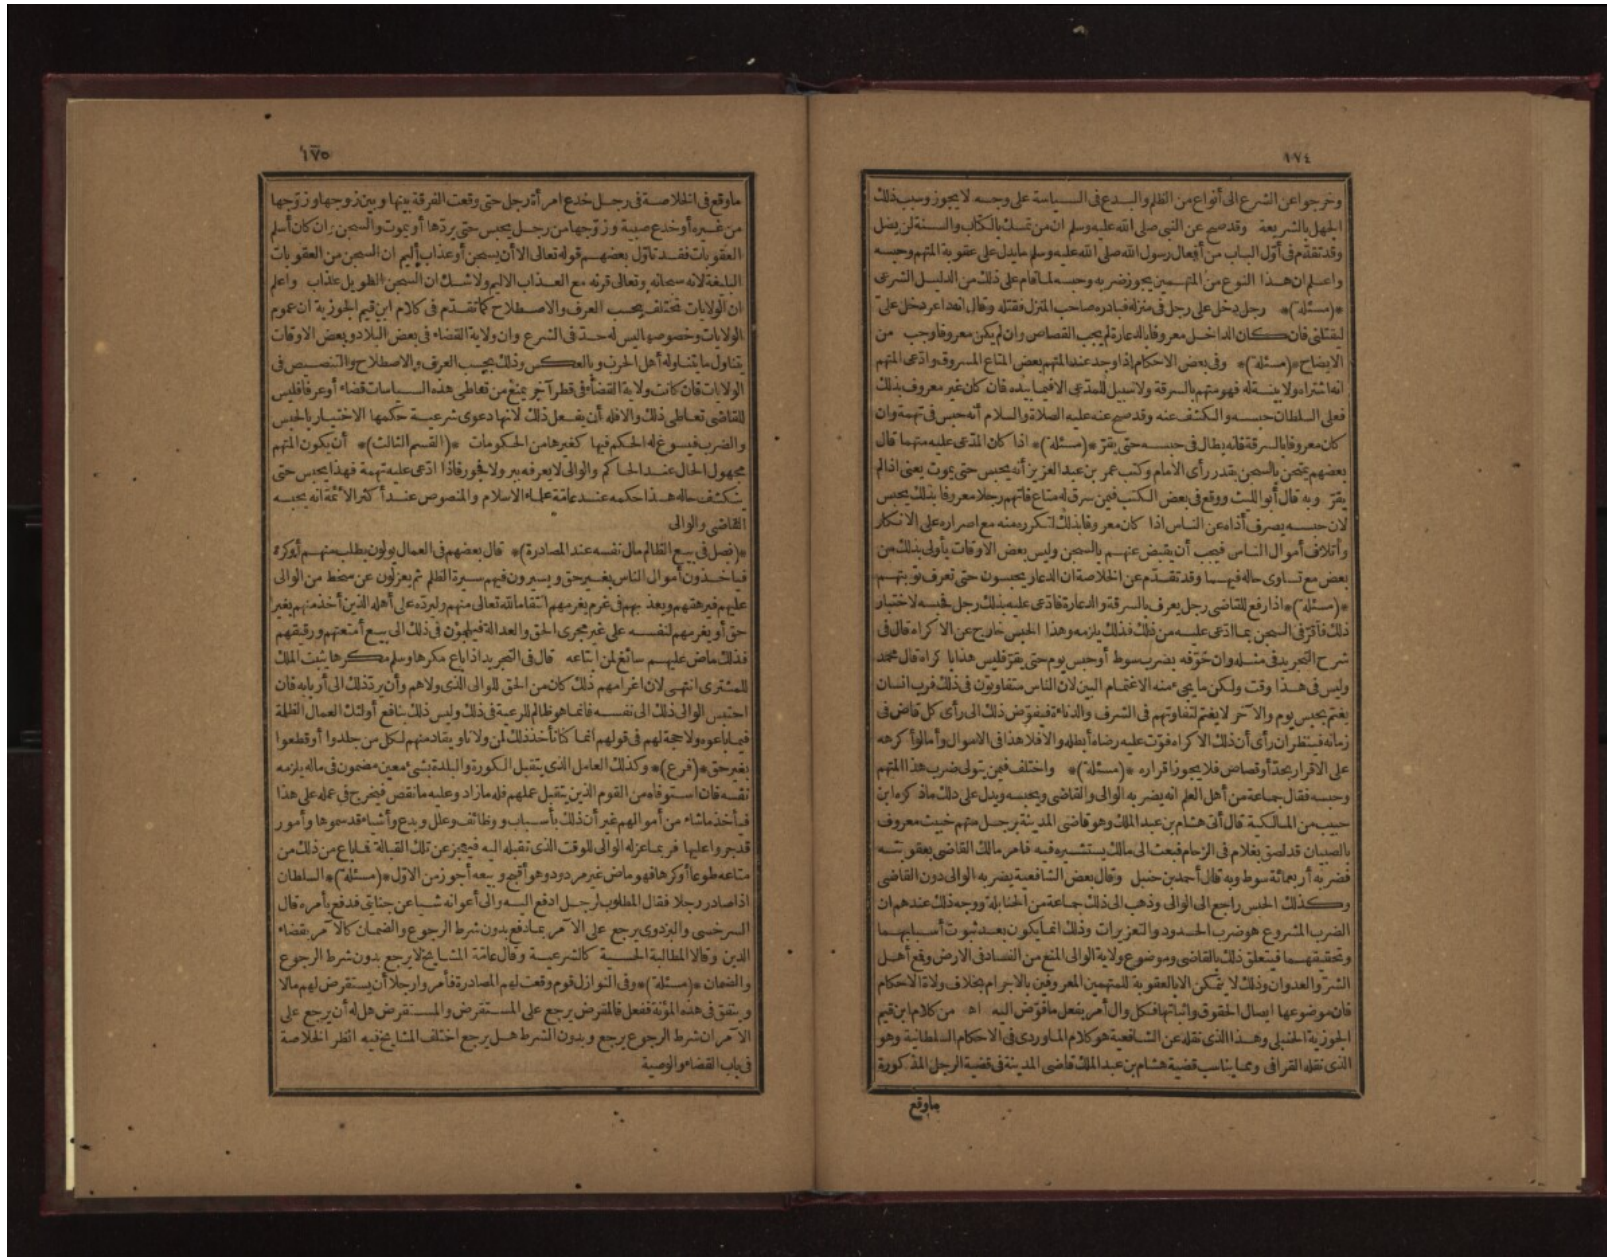 ١٧٤
وخرجوا عن الشرع الى أنواع من الظلم والبدع فى السياسة على وجه لا يجوز وسبب ذلك
الجهل بالشريعة وقد صح عن النبى صلى الله عليه وسلم ان من تمسك بالكتاب والسنة لن يضل
وقد تقدم فى أول الباب من أفعال رسول الله صلى الله عليه وسلم ما يدل على عقوبة المتهم وحبسه
واعلم ان هذا النوع من المتهمين يجوز ضربه وحبسه لما قام على ذلك من الدليل الشرعى
*(مسئلة)* رجل دخل على رجل فى منزله فبادره صاحب المنزل فقتله وقال انه داعر دخل على
ليقتلنى فان كان الداخل معروفا بالدعارة لم يجب القصاص وان لم يكن معروفا وجب من
الايضاح *(مسئلة)* وفى بعض الاحكام اذا وجد عند المتهم بعض المتاع المسروق وادعى المتهم
انه اشتراه ولا بينة له فهو متهم بالسرقة ولا سبيل للمدعى الا فيما بيده فان كان غير معروف بذلك
فعلى السلطان حبسه والكشف عنه وقد صح عنه عليه الصلاة والسلام أنه حبس فى تهمة وان
كان معروفا بالسرقة فانه يطال فى حبسه حتى يقر *(مسئلة)* اذا كان المدعى عليه متهما قال
بعضهم يمتحن بالسجن بقدر رأى الامام وكتب عمر بن عبد العزيز أنه يحبس حتى يموت يعنى اذا لم
يقر وبه قال أبو الليث ووقع فى بعض الكتب فيمن سرق له متاع فاتهم رجلا معروفا بذلك يحبس
لان حبسه يصرف أذاه عن الناس اذا كان معروفا بذلك لتكرره منه مع اصراره على الانكار
وأتلاف أموال الناس فيجب أن يقبض عنهم بالسجن وليس بعض الاوقات بأولى بذلك من
بعض مع تساوى حاله فيهما وقد تقدم عن الخلاصة ان الدعار يحبسون حتى تعرف توبتهم
*(مسئلة)* اذا رفع للقاضى رجل يعرف بالسرقة والدعارة فادعى عليه بذلك رجل فحبسه لاختبار
ذلك فأقر فى السجن بما ادعى عليه من ذلك فذلك يلزمه وهذا الحبس خارج عن الاكراه قال فى
شرح التجريد فى مثله وان خوفه بضرب سوط أو حبس يوم حتى يقر فليس هذا باكراه قال محمد
وليس فى هذا وقت ولكن ما يجىء منه الاغتمام البين لان الناس متفاوتون فى ذلك فرب انسان
يغتم بحبس يوم والآخر لا يغتم لتفاوتهم فى الشرف والدناءة فيفوض ذلك الى رأى كل قاض فى
زمانه فينظر ان رأى أن ذلك الاكراه فوت عليه رضاه أبطله والا فلا هذا فى الاموال وأما لو أكرهه
على الاقرار بحد أو قصاص فلا يجوز اقراره *(مسئلة)* واختلف فيمن يتولى ضرب هذا المتهم
وحبسه فقال جماعة من أهل العلم انه يضربه الوالى والقاضى ويحبسه ويدل على ذلك ما ذكره ابن
حبيب من المالكية قال أتى هشام بن عبد الملك وهو قاضى المدينة برجل متهم خبيث معروف
بالصبيان قد لصق بغلام فى الزحام فبعث الى مالك يستشيره فيه فامر مالك القاضى بعقوبته
فضربه أربعمائة سوط وبه قال أحمد بن حنبل وقال بعض الشافعية يضربه الوالى دون القاضى
وكذلك الحبس راجع الى الوالى وذهب الى ذلك جماعة من الحنابلة ووجه ذلك عندهم ان
الضرب المشروع هو ضرب الحدود والتعزيرات وذلك انما يكون بعد ثبوت أسبابها
وتحققها فيتعلق ذلك بالقاضى وموضوع ولاية الوالى المنع من الفساد فى الارض وقع أهل
الشر والعدوان وذلك لا يتمكن الا بالعقوبة للمتهمين المعروفين بالاجرام بخلاف ولاة الاحكام
فان موضوعها ايصال الحقوق واثباتها فكل وال أمر بفعل ما فوض اليه اه من كلام ابن قيم
الجوزية الحنبلى وهذا الذى نقله عن الشافعية هو كلام الماوردى فى الاحكام السلطانية وهو
الذى نقله القرافى ومما يناسب قضية هشام بن عبد الملك قاضى المدينة فى قضية الرجل المذكورة
ما وقع
١٧٥
ما وقع فى الخلاصة فى رجل خدع امرأة رجل حتى وقعت الفرقة بينها وبين زوجها وزوجها
من غيره أو خدع صبية وزوجها من رجل يحبس حتى يردها أو يموت والسجن وان كان أسلم
العقوبات فقد تأول بعضهم قوله تعالى الا أن يسجن أو عذاب أليم ان السجن من العقوبات
البليغة لانه سبحانه وتعالى قرنه مع العذاب الاليم ولا شك ان السجن الطويل عذاب واعلم
ان الولايات تختلف بحسب العرف والاصطلاح كما تقدم فى كلام ابن قيم الجوزية ان عموم
الولايات وخصوصها ليس له حد فى الشرع وان ولاية القضاء فى بعض البلاد وبعض الاوقات
يتناول ما يتناوله أهل الحرب وبالعكس وذلك بحسب العرف والاصطلاح والتنصيص فى
الولايات فان كانت ولاية القضاء فى قطر آخر يمنع من تعاطى هذه السياسات قضاء أو عرفا فليس
للقاضى تعاطى ذلك والا فله أن يفعل ذلك لانها دعوى شرعية حكمها الاختبار بالحبس
والضرب فيسوغ له الحكم فيها كغيرها من الحكومات *(القسم الثالث)* أن يكون المتهم
مجهول الحال عند الحاكم والوالى لا يعرفه ببر ولا فجور فاذا ادعى عليه تهمة فهذا يحبس حتى
ينكشف حاله هذا حكمه عند عامة علماء الاسلام والمنصوص عند أكثر الائمة انه يحبسه
القاضى والوالى
*(فصل فى بيع الظالم مال نفسه عند المصادرة)* قال بعضهم فى العمال يولون بطلب منهم أو كره
فيأخذون أموال الناس بغير حق ويسيرون فيهم سيرة الظلم ثم يعزلون عن سخط من الوالى
عليهم فيرهقهم ويعذبهم فى غرم يغرمهم انتقاما لله تعالى منهم وليرده على أهله الذين أخذ منهم بغير
حق أو يغرمهم لنفسه على غير مجرى الحق والعدالة فيلجؤن فى ذلك الى بيع أمتعتهم ورقيقهم
فذلك ماض عليهم سائغ لمن ابتاعه قال فى التجريد اذا باع مكرها وسلم مكرها يثبت الملك
للمشترى انتهى لان اغرامهم ذلك كان من الحق للوالى الذى ولاهم وأن يرد ذلك الى أربابه فان
احتبس الوالى ذلك الى نفسه فانما هو ظالم للرعية فى ذلك وليس ذلك بنافع أولئك العمال الظلمة
فيما باعوه ولا حجة لهم فى قولهم انما كنا نأخذ ذلك لمن ولانا ويقاد منهم لكل من جلدوا أو قطعوا
بغير حق *(فرع)* وكذلك العامل الذى يتقبل الكورة والبلدة بشىء معين مضمون فى ماله يلزمه
نفسه فان استوفاه من القوم الذين يتقبل عملهم فله ما زاد وعليه ما نقص فيخرج فى عمله على هذا
فيأخذ ما شاء من أموالهم غير أن ذلك بأسباب ووظائف وعلل وبدع وأشياء قد سموها وأمور
قد جروا عليها فربما عزله الوالى للوقت الذى تقبله اليه فيعجز عن تلك القبالة فما باع من ذلك من
متاعه طوعا أو كرها فهو ماض غير مردود وهو أقبح وبيعه أجوز من الاول *(مسئلة)* السلطان
اذا صادر رجلا فقال المطلوب لرجل ادفع اليه والى أعوانه شيأ عن جنايتى فدفع بأمره قال
السرخسى والبزدوى يرجع على الآمر بما دفع بدون شرط الرجوع والضمان كالآمر بقضاء
الدين وقالا المطالبة الحسية كالشرعية وقال عامة المشايخ لا يرجع بدون شرط الرجوع
والضمان *(مسئلة)* وفى النوازل قوم وقعت لهم المصادرة فأمروا رجلا أن يستقرض لهم مالا
وينفق فى هذه المؤنة ففعل فالمقرض يرجع على المستقرض والمستقرض هل له أن يرجع على
الآمر ان شرط الرجوع يرجع وبدون الشرط هل يرجع اختلف المشايخ فيه انظر الخلاصة
فى باب القضاء والوصية